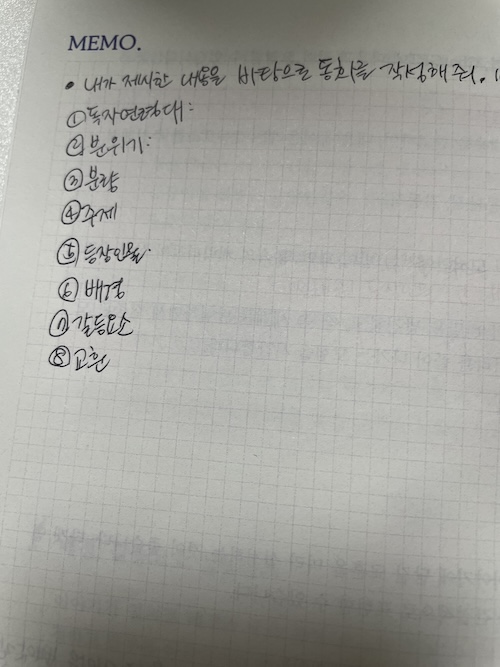 MEMO.
• 내가 제시한 내용을 바탕으로 동화를 작성해줘.
① 독자연령대:
② 분위기:
③ 분량
④ 주제
⑤ 등장인물.
⑥ 배경
⑦ 갈등요소
⑧ 교훈